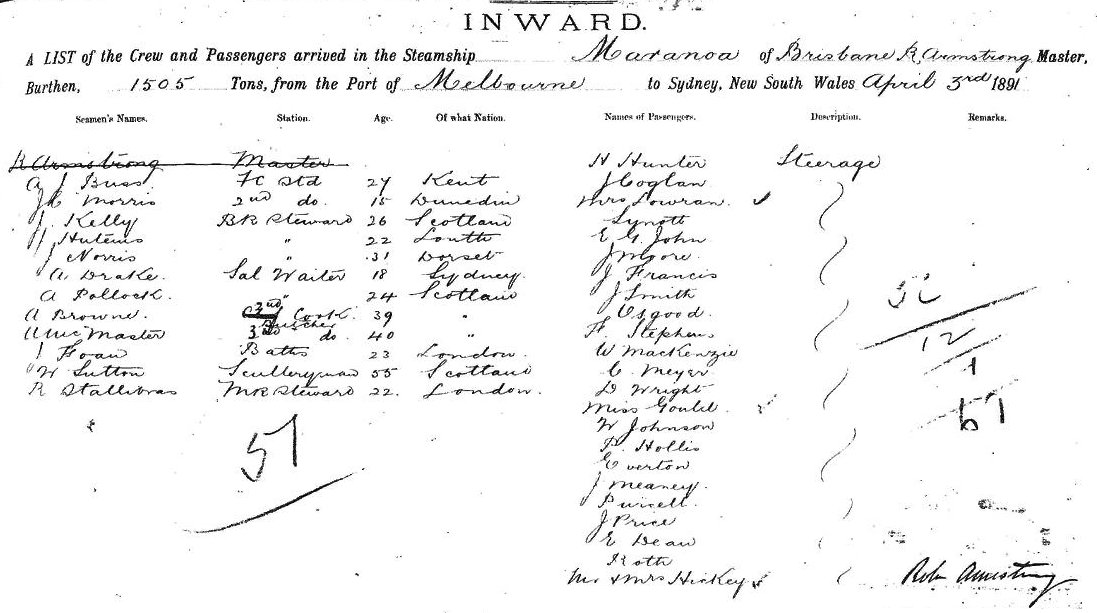 INWARD.
A LIST of the Crew and Passengers arrived in the Steamship Maranoa of Brisbane R. Armstrong Master,
Burthen, 1505 Tons, from the Port of Melbourne to Sydney, New South Wales April 3rd 1891
Seamen's Names. Station. Age. Of what Nation. Names of Passengers. Description. Remarks.
R Armstrong Master H Hunter Steerage
A J Buss FC Std 27 Kent J Coglan
J C Morris 2nd do. 15 Dunedin Mrs Lowran.
J. Kelly BR Steward 26 Scotland Synott
H Hutems " 22 Louth E G. John
J Norris " 31 Dorset J W Gore
A. Drake. Sal Waiter 18 Sydney. J Francis
A Pollock. " 24 Scotland J Smith
A Browne. 2nd Cook. 39 " Osgood.
A McMaster Butcher 3rd do. 40 " F Stephens
J Hoan Baths 23 London. W MacKenzie
W Sutton Sculleryman 55 Scotland C. Meyer
R Stallibras MR Steward 22. London. D Wright
Miss Gould.
W Johnson
P. Hollis
Everton
J Meaney.
Purcell.
J Price
E Dean
Roth
Mr & Mrs Hickey
57
32
12
1
57
Robt Armstrong